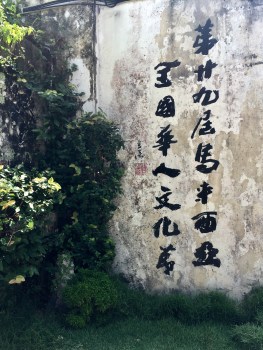 第廿九届馬来西亞
全國華人文化節